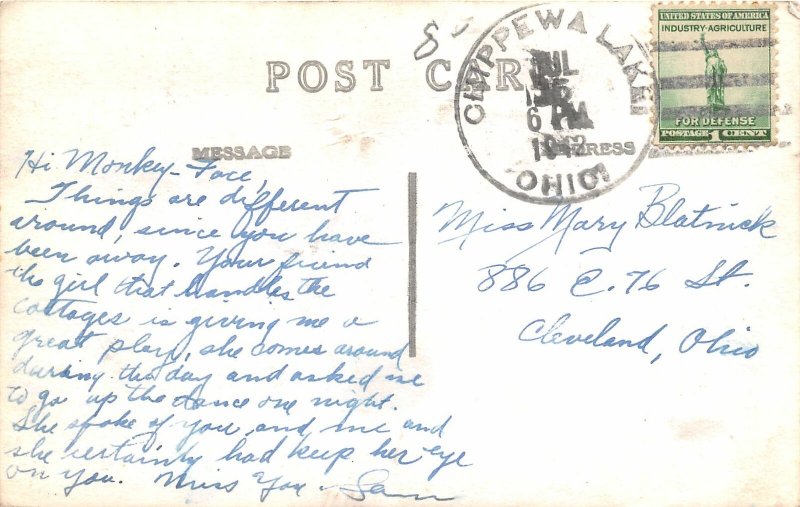 8
POST CARD
CHIPPEWA LAKE,
JUL
6 PM
1942
OHIO
UNITED STATES OF AMERICA
INDUSTRY-AGRICULTURE
FOR DEFENSE
POSTAGE 1 CENT
MESSAGE
ADDRESS
Hi Monkey-Face,
Things are different
around, since you have
been away. Your friend
the girl that handles the
cottages is giving me a
great play, she comes around
during the day and asked me
to go up the dance one night.
She spoke of you and me and
she certainly had keep her eye
on you. Miss You - Sam
Miss Mary Blatnick
886 E. 76 St.
Cleveland, Ohio